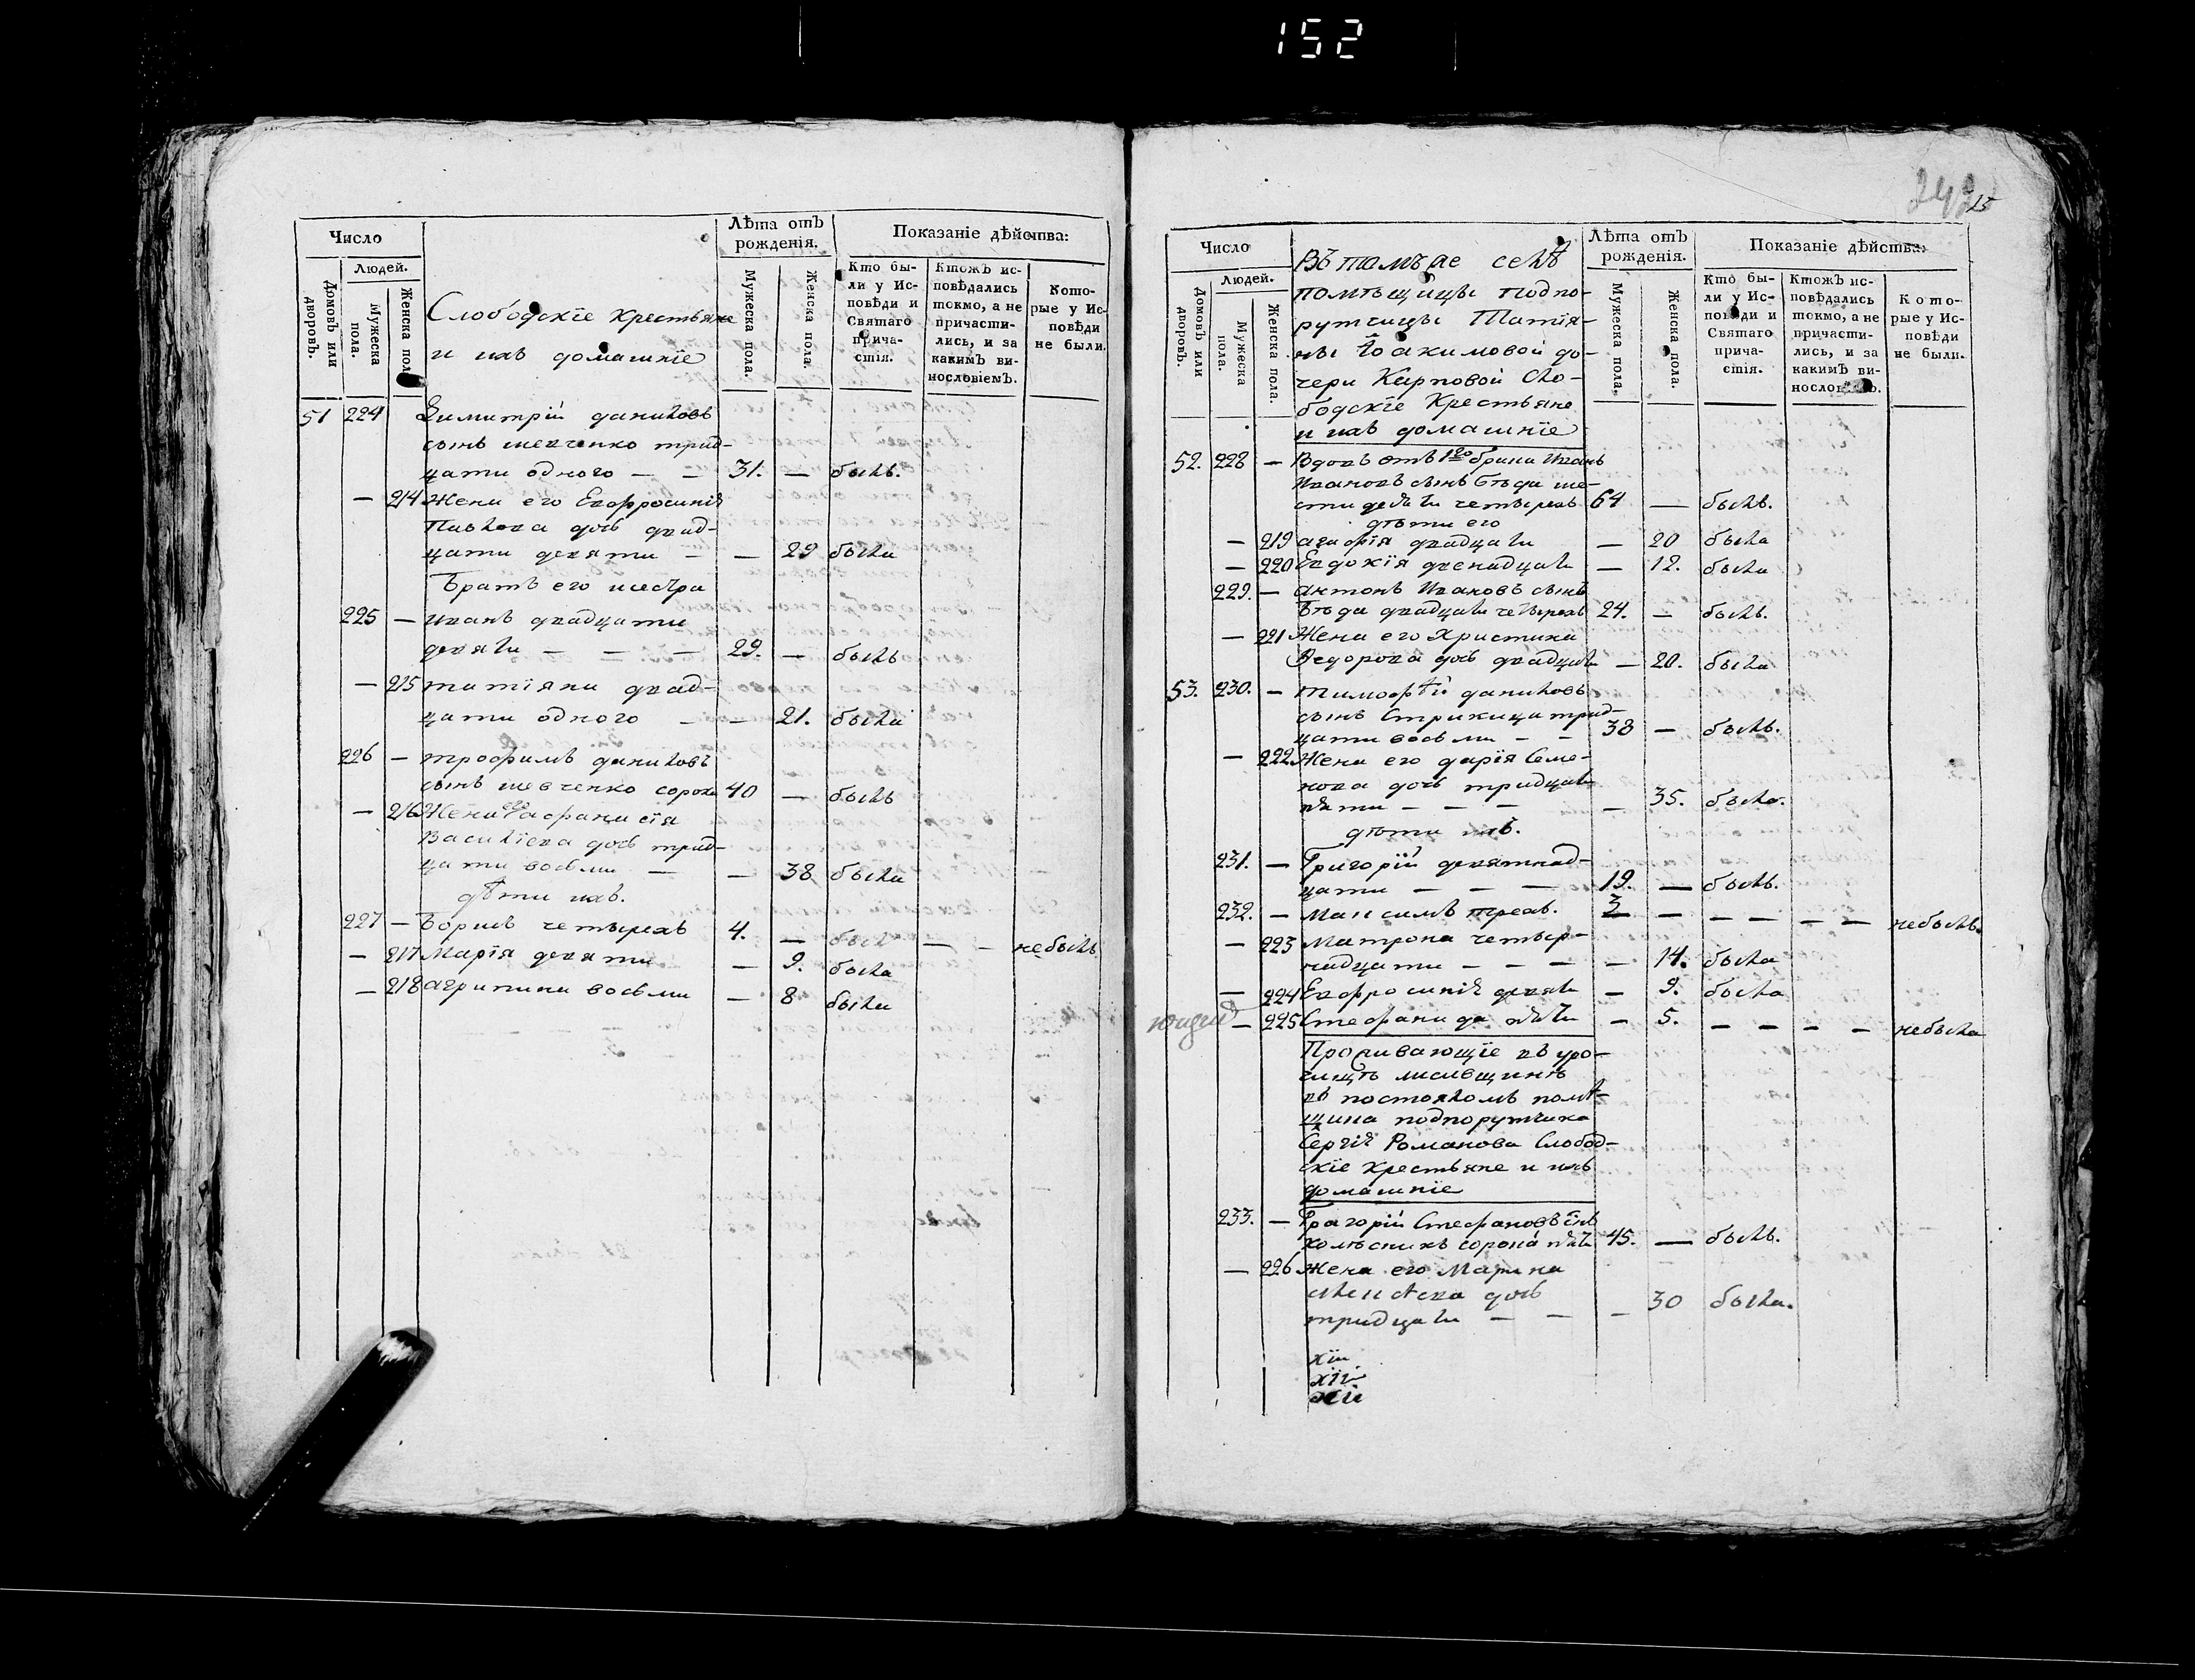 152
Число
Людей.
Домовъ или дворовъ.
Мужеска пола.
Женска пола.
Слободскїе Крестьяне
и ихъ домашнїе
Лѣта отъ рожденїя.
Мужеска пола.
Женска пола.
Показанїе дѣйства:
Кто были у Исповѣди и Святаго причастїя.
Ктожъ исповѣдались токмо, а не причастились, и за какимъ винословїемъ.
Которые у Исповѣди не были.
51 224 Димитрїй даниловъ
сынъ шевченко трид-
цати одного — — 31. — былъ.
— 214 Жена его Евфросинїя
Павлова дочь двад-
цати девяти — — 29 была
Братъ его сестра
225 — иванъ двадцати
девяти — — — 29. — былъ
— 215 татїяна двад-
цати одного — — 21. была
226 — трофимъ даниловъ
сынъ шевченко сорока 40 — былъ
— 216 Жена его
Василїева дочь трид-
цати восьми — — 38 была
дѣти ихъ.
227 — Борисъ четырехъ 4. — был — — небылъ
— 217 Марїя девяти — 9. была
— 218 агрипина восьми — 8 была
242 25
Число
Людей.
Домовъ или дворовъ.
Мужеска пола.
Женска пола.
Въ томъже селѣ
помѣщицы подпо-
рутчицы Татїя-
ны Іоакимовой до-
чери Карповой Сло-
бодскїе Крестьяне
и ихъ домашнїе
Лѣта отъ рожденїя.
Мужеска пола.
Женска пола.
Показанїе дѣйства:
Кто были у Исповѣди и Святаго причастїя.
Ктожъ исповѣдались токмо, а не причастились, и за какимъ винословїемъ.
Которые у Исповѣди не были.
52. 228 — Вдовъ отъ 1го брака Иванъ
Ивановъ сынъ Бѣда ше-
стидесяти четырехъ 64 — былъ.
дѣти его
— 219 агафїя двадцати — 20 была
— 220 Евдокїя двенадцати — 12. была
229. — антонъ Ивановъ сынъ
Бѣда двадцати четырехъ 24. — былъ.
— 221 Жена его Христина
Федорова дочь двадцати — 20. была
53. 230. — тимофѣй даниловъ
сынъ трид-
цати восьми — — 38 — былъ.
— 222 Жена его дарїя Семе-
нова дочь тридцати
пяти — — — — 35. была.
дѣти ихъ.
231. — Григорїй девятнад-
цати — — — 19. — былъ.
232. — Максимъ трехъ. 3 — — — — — небылъ.
— 223 Матрона четыр-
надцати — — — — 14. была
— 224 Евфросинїя девяти — 9. была
— 225 Стефанида пяти — 5. — — — — небыла
Проживающїе въ уро-
чищѣ
въ помѣ-
щика подпорутчика
Сергїя Романова Слобод-
скїе крестьяне и ихъ
домашнїе
233. — Григорїй Стефановъ сынъ
колѣсникъ сорока пяти 45. — былъ.
— 226 Жена его Марина
дочь
тридцати — — — 30 была.